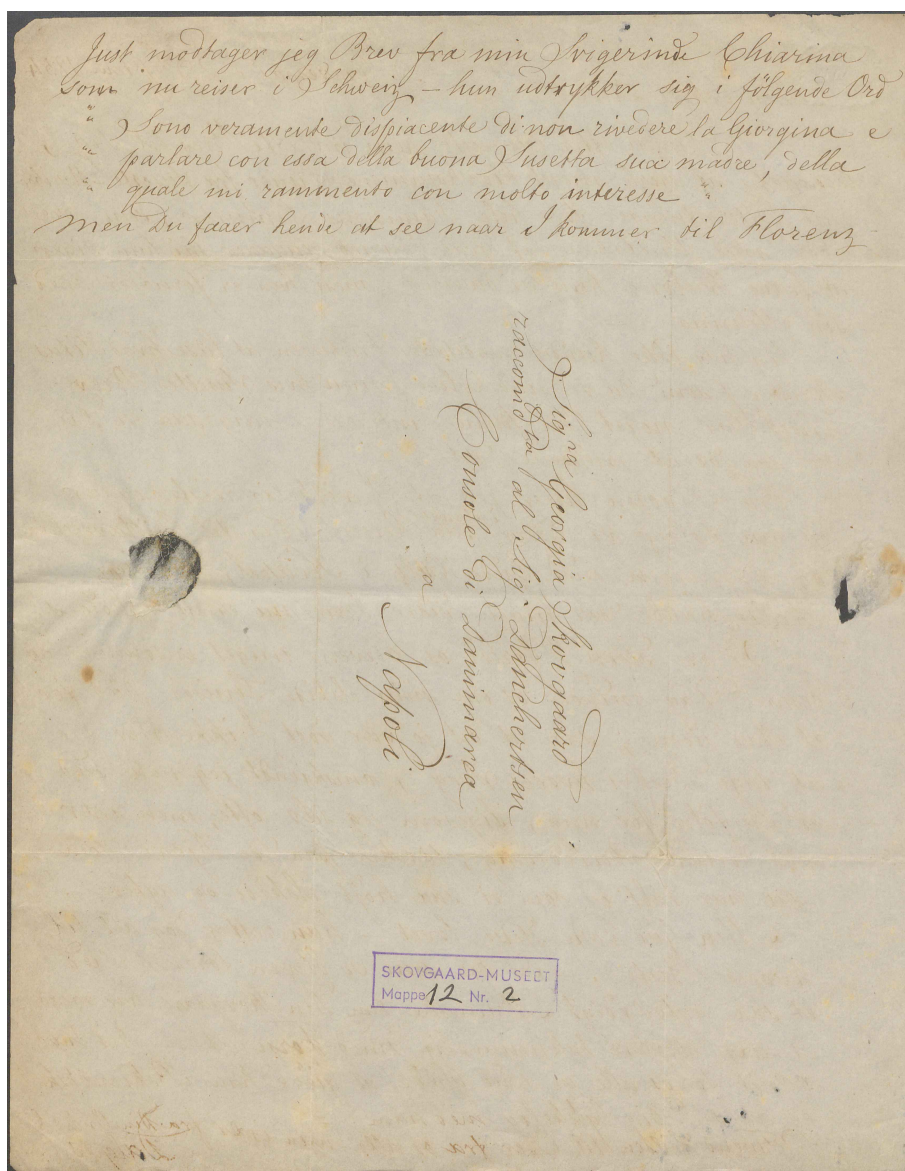 Just modtager jeg Brev fra min Svigerinde Chiarina
som nu reiser i Schweiz – hun udtrykker sig i følgende Ord
" Sono veramente dispiacente di non rivedere la Giorgina e
" parlare con essa della buona Susetta sua madre, della
" quale mi rammento con molto interesse "
Men Du faaer hende at see naar I kommer til Florenz
Sig.ra Georgia Skovgaard
raccomd.ta al Sig. Danchertsen
Console di Danimarca
a
Napoli
SKOVGAARD-MUSEET
Mappe 12 Nr. 2